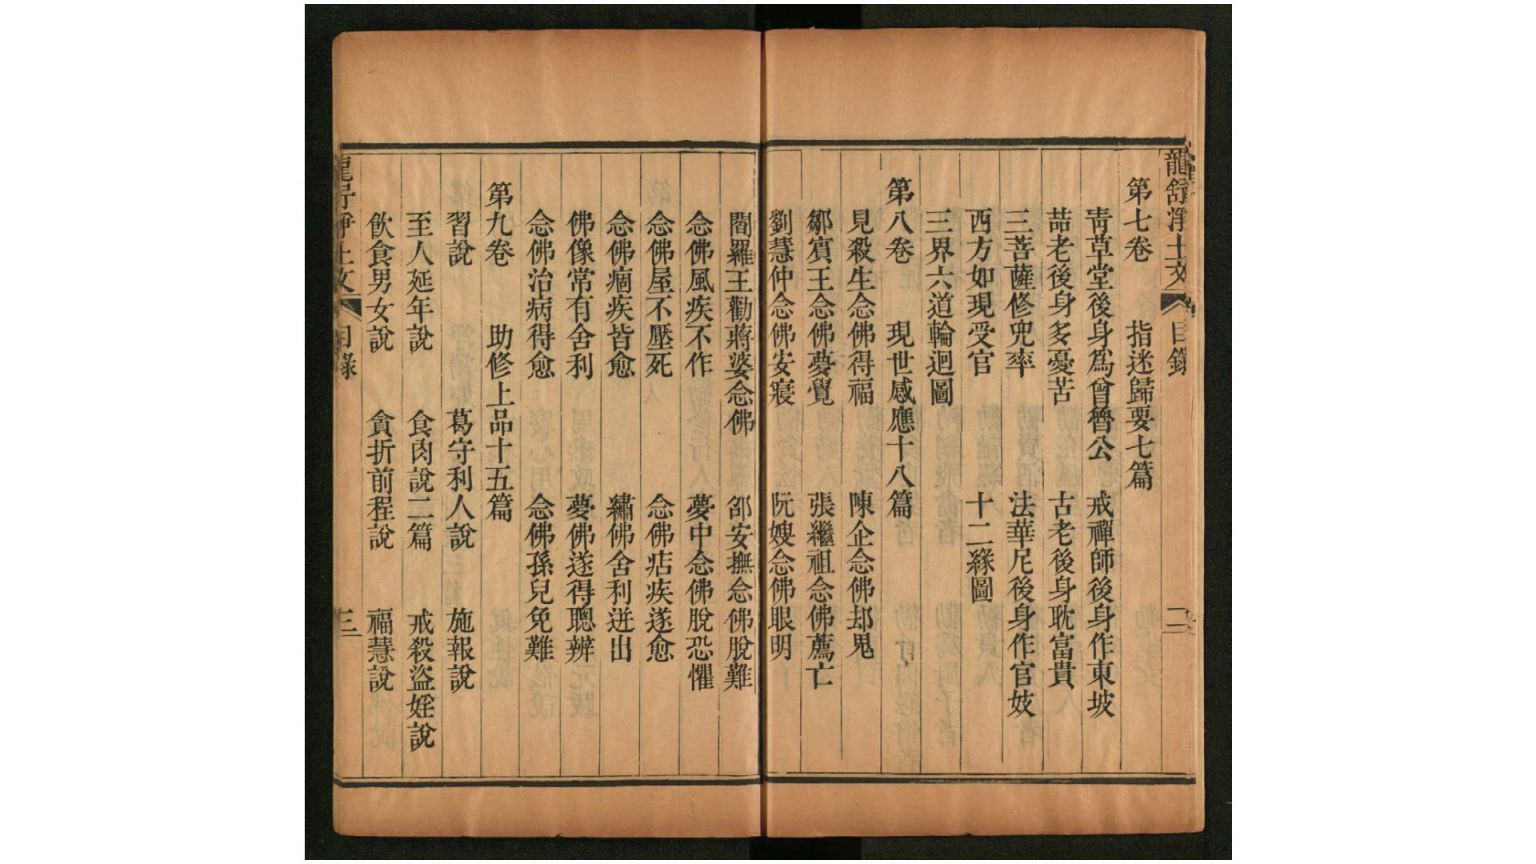 龍舒淨土文 目錄 二
第七卷 指迷歸要七篇
靑草堂後身爲曾魯公 戒禪師後身作東坡
喆老後身多憂苦 古老後身耽富貴
三菩薩修兜率 法華尼後身作官妓
西方如現受官 十二緣圖
三界六道輪迴圖
第八卷 現世感應十八篇
見殺生念佛得福 陳企念佛却鬼
鄒賓王念佛夢覺 張繼祖念佛薦亡
劉慧仲念佛安寢 阮嫂念佛眼明
閻羅王勸蔣婆念佛 邵安撫念佛脫難
念佛風疾不作 夢中念佛脫恐懼
念佛屋不壓死 念佛痁疾遂愈
念佛痼疾皆愈 繡佛舍利迸出
佛像常有舍利 夢佛遂得聰辨
念佛治病得愈 念佛孫兒免難
第九卷 助修上品十五篇
習說 葛守利人說 施報說
至人延年說 食肉說二篇 戒殺盜婬說
飮食男女說 貪折前程說 福慧說
龍舒淨土文 目錄 三